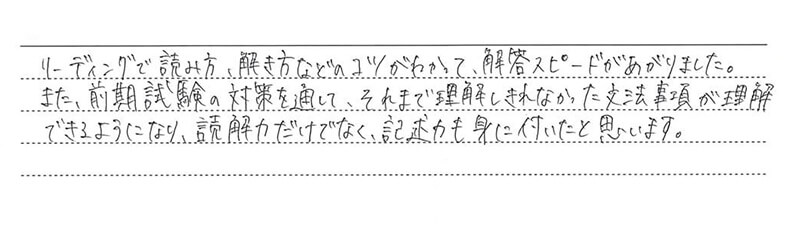 リーディングで読み方、解き方などのコツがわかって、解答スピードがあがりました。
また、前期試験の対策を通して、それまで理解しきれなかった文法事項が理解
できるようになり、読解力だけでなく、記述力も身に付いたと思います。